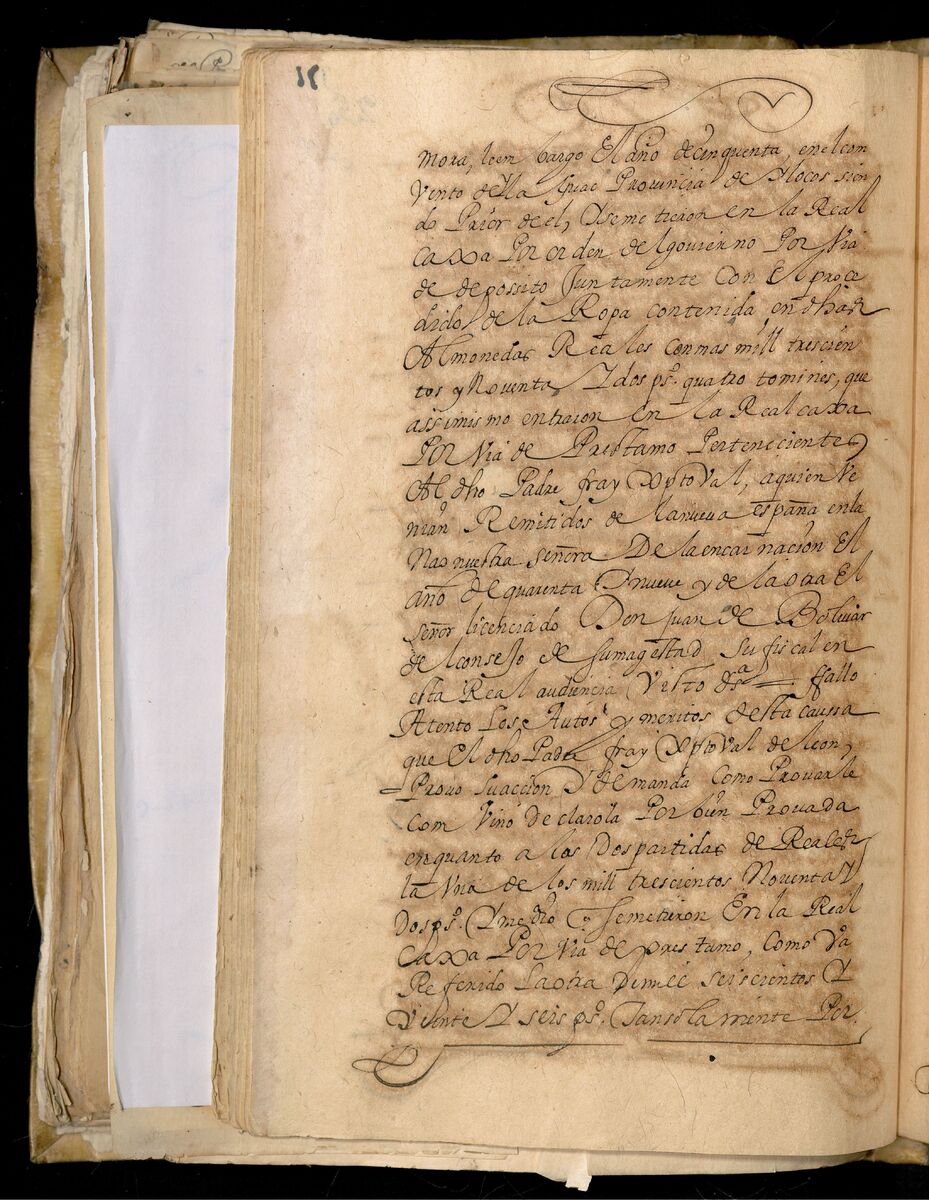 mora, le embargo El año de cinquenta, en el con
Vento de Ylla Provincia de Ylocos sien
do Prior de el, Y se metieron en la Real
caxa Por orden del govierno Por Via
de depossito Juntamente con El proce
dido de la Ropa contenida, en dhas
Almonedas Reales con mas mill trescien
tos y Noventa Y dos ps. quatro tomines, que
assimismo entraron en la Real caxa
Por Via de Prestamo Perteneciente,
Al dho Padre fray XptoVal, a quien Ve
nian Remitidos de la nueva españa en la
Nao nuestra señora De la encarnacion El
año de quarenta Y nueve y de la otra El
señor licenciado Don Juan de Bolivar
del consejo de su magestad Su fiscal en
esta Real audiencia Visto &sa = ffallo
Atento Los Autos y meritos desta caussa
que El dho Padre fray XptoVal de leon,
Provo su accion Y demanda como Provarle
com Vino declarola Por bien Provada
en quanto a las Dos partidas de Reales
la Vna de los mill trescientos Noventa Y
Dos ps. Y medio q se metieron En la Real
Caxa Por Via de prestamo, como Va
Referido La otra De mill seiscientos Y
Veinte Y seis ps. Tan solamente Por